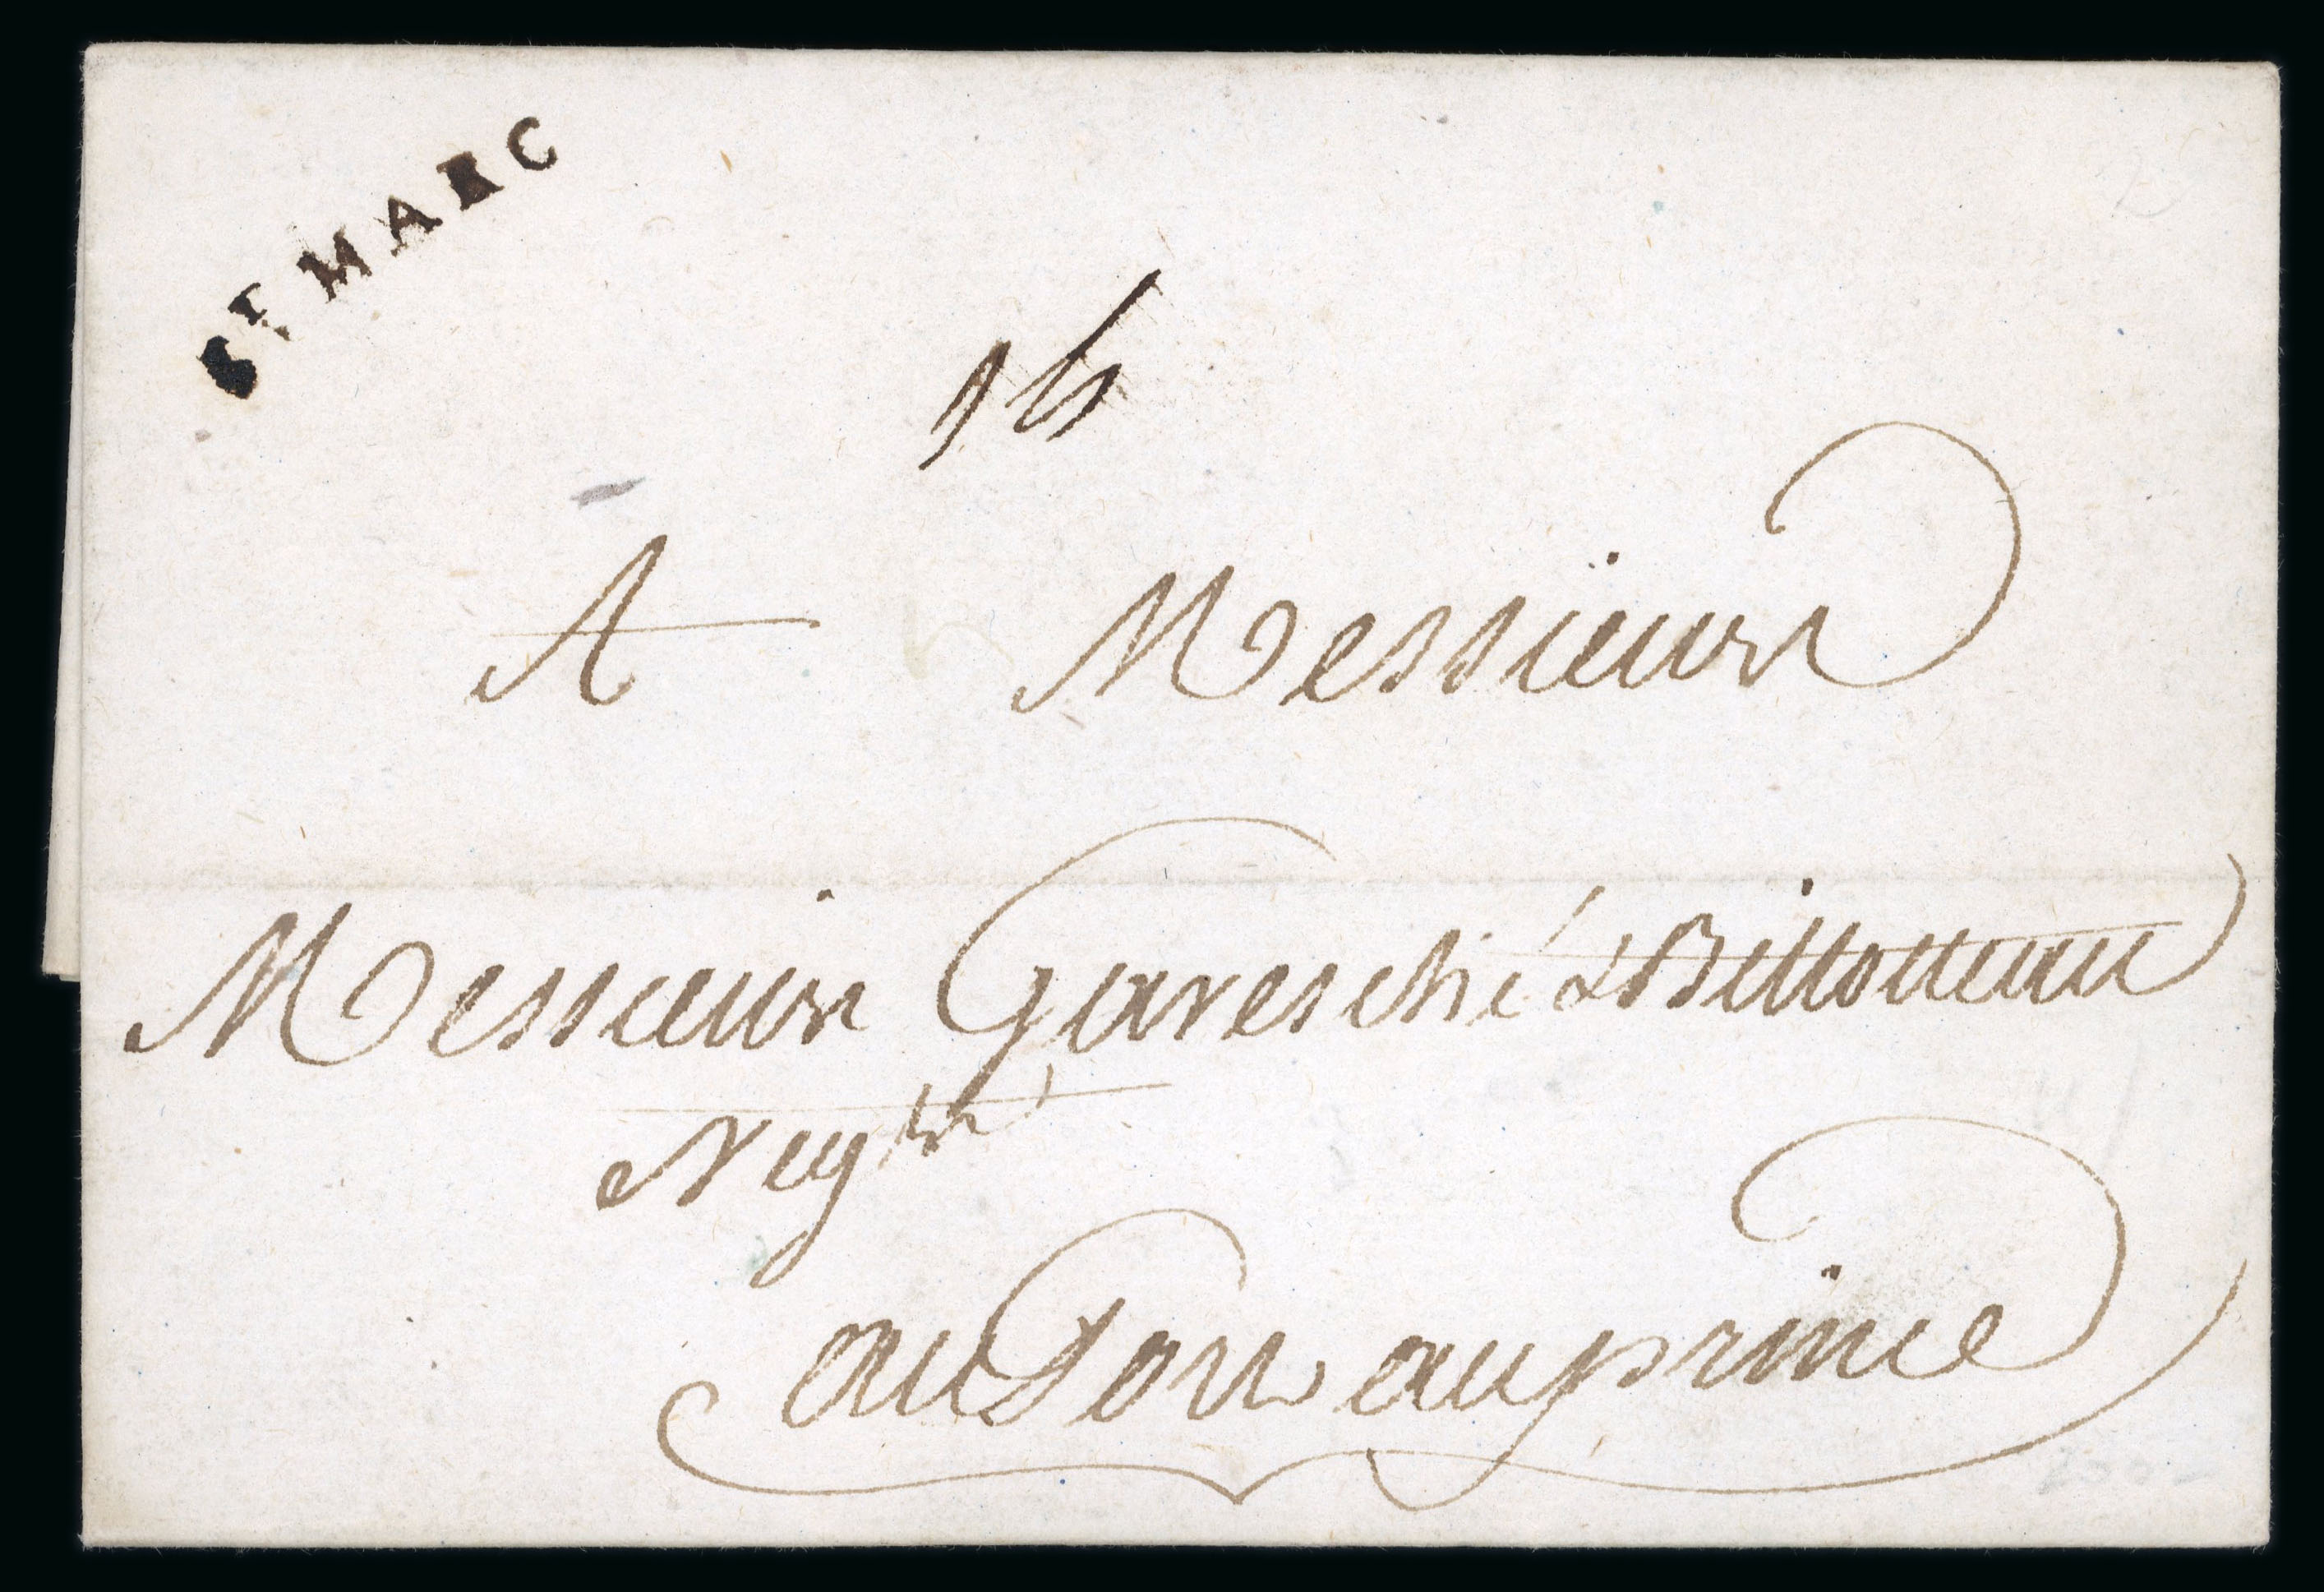 ST MARC
A Messieurs
Messieurs Garesché & Billotteau
Negts
au Port au prince